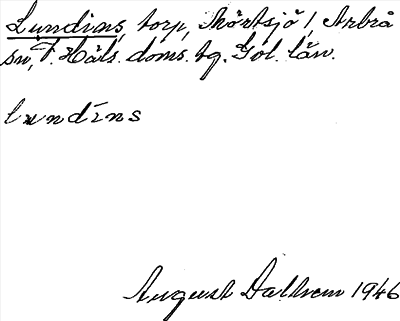 Lundins, torp, Mörtsjö 1, Arbrå
sn, V. Häls. doms. tg. Gvl. län.
lundins
August Dalhem 1946